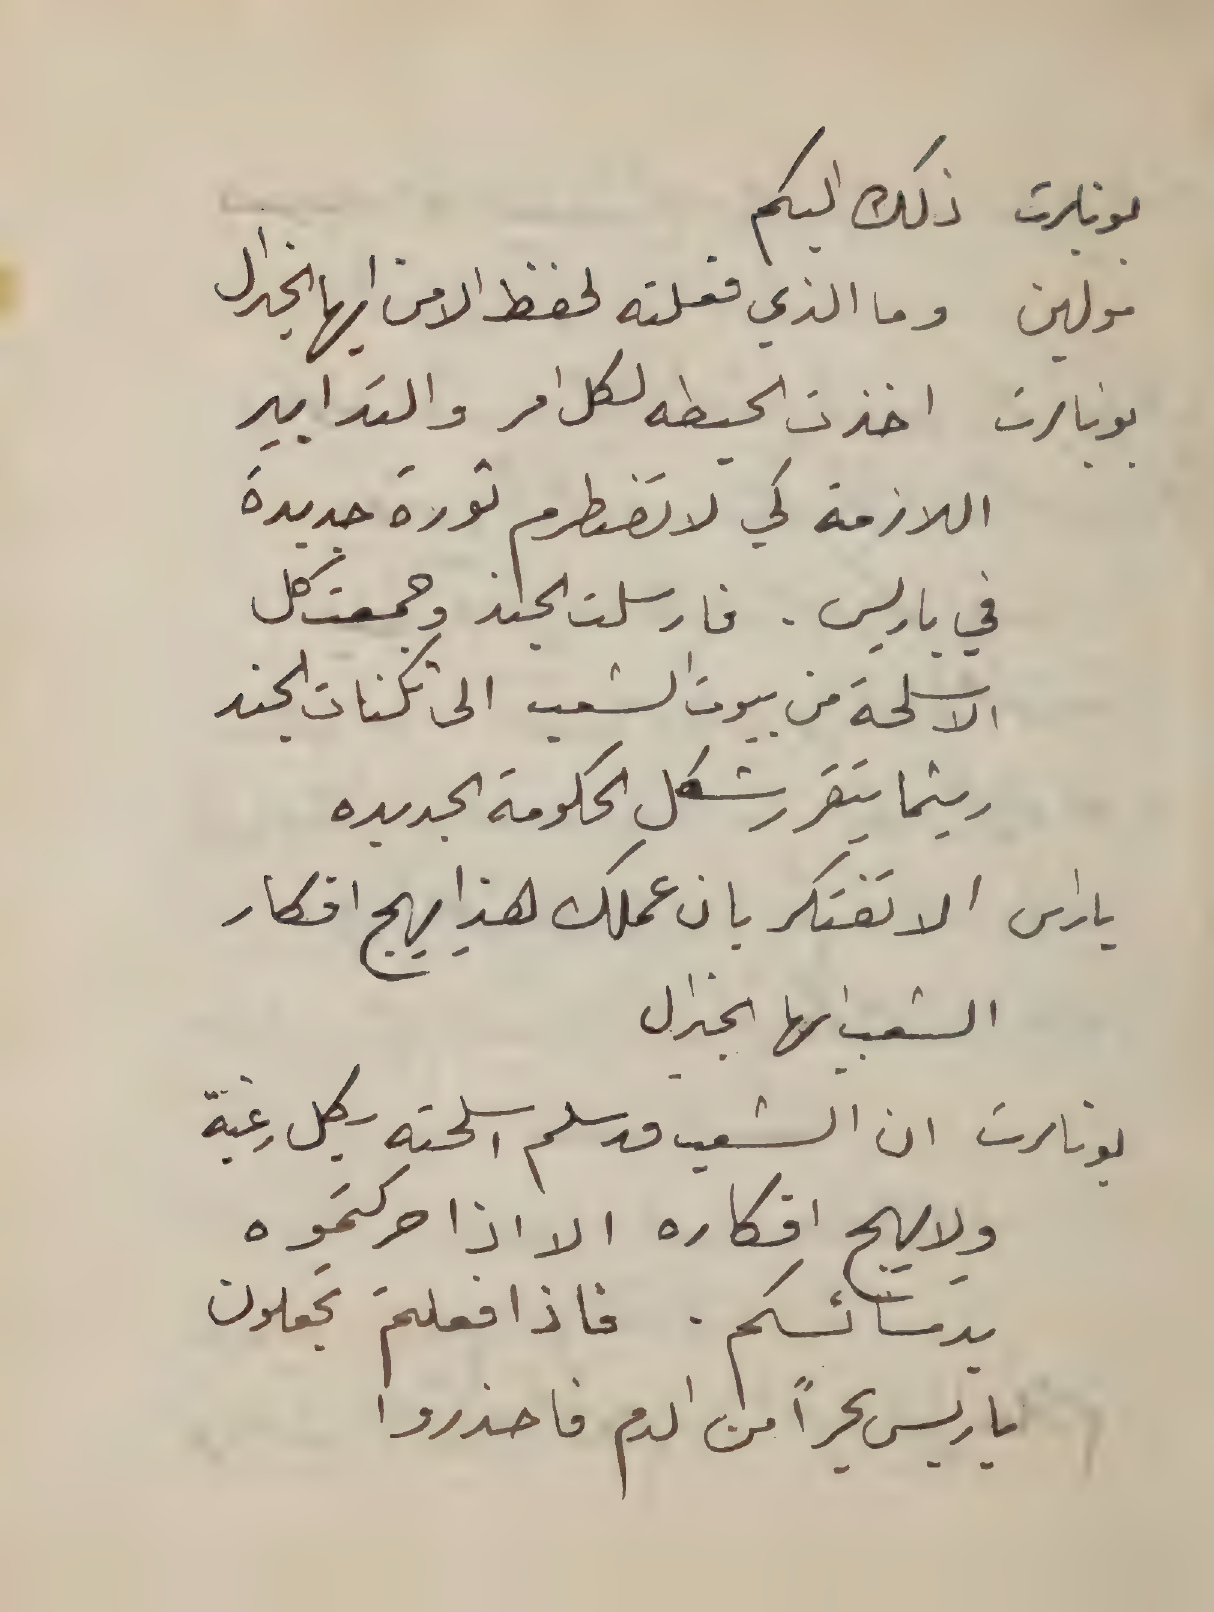 بونابرت ذلك اليكم
مولين وما الذي فعلته لحفظ الامن ايها الجنرال
بونابرت اخذت الحيطه لكل امر والتدابير
اللازمة كي لا تضطرم ثورة جديدة
في باريس . فارسلت الجند وجمعت كل
الاسلحة من بيوت الشعب الى ثكنات الجند
ريثما يتقرر شكل الحكومة الجديده
باراس الا تفتكر بان عملك هذا يهيج افكار
الشعب ايها الجنرال
بونابرت ان الشعب قد سلم اسلحته بكل رغبة
ولا يهيج افكاره الا اذا حركتموه
بدسائسكم . فاذا فعلتم تجعلون
باريس بحراً من الدم فاحذروا